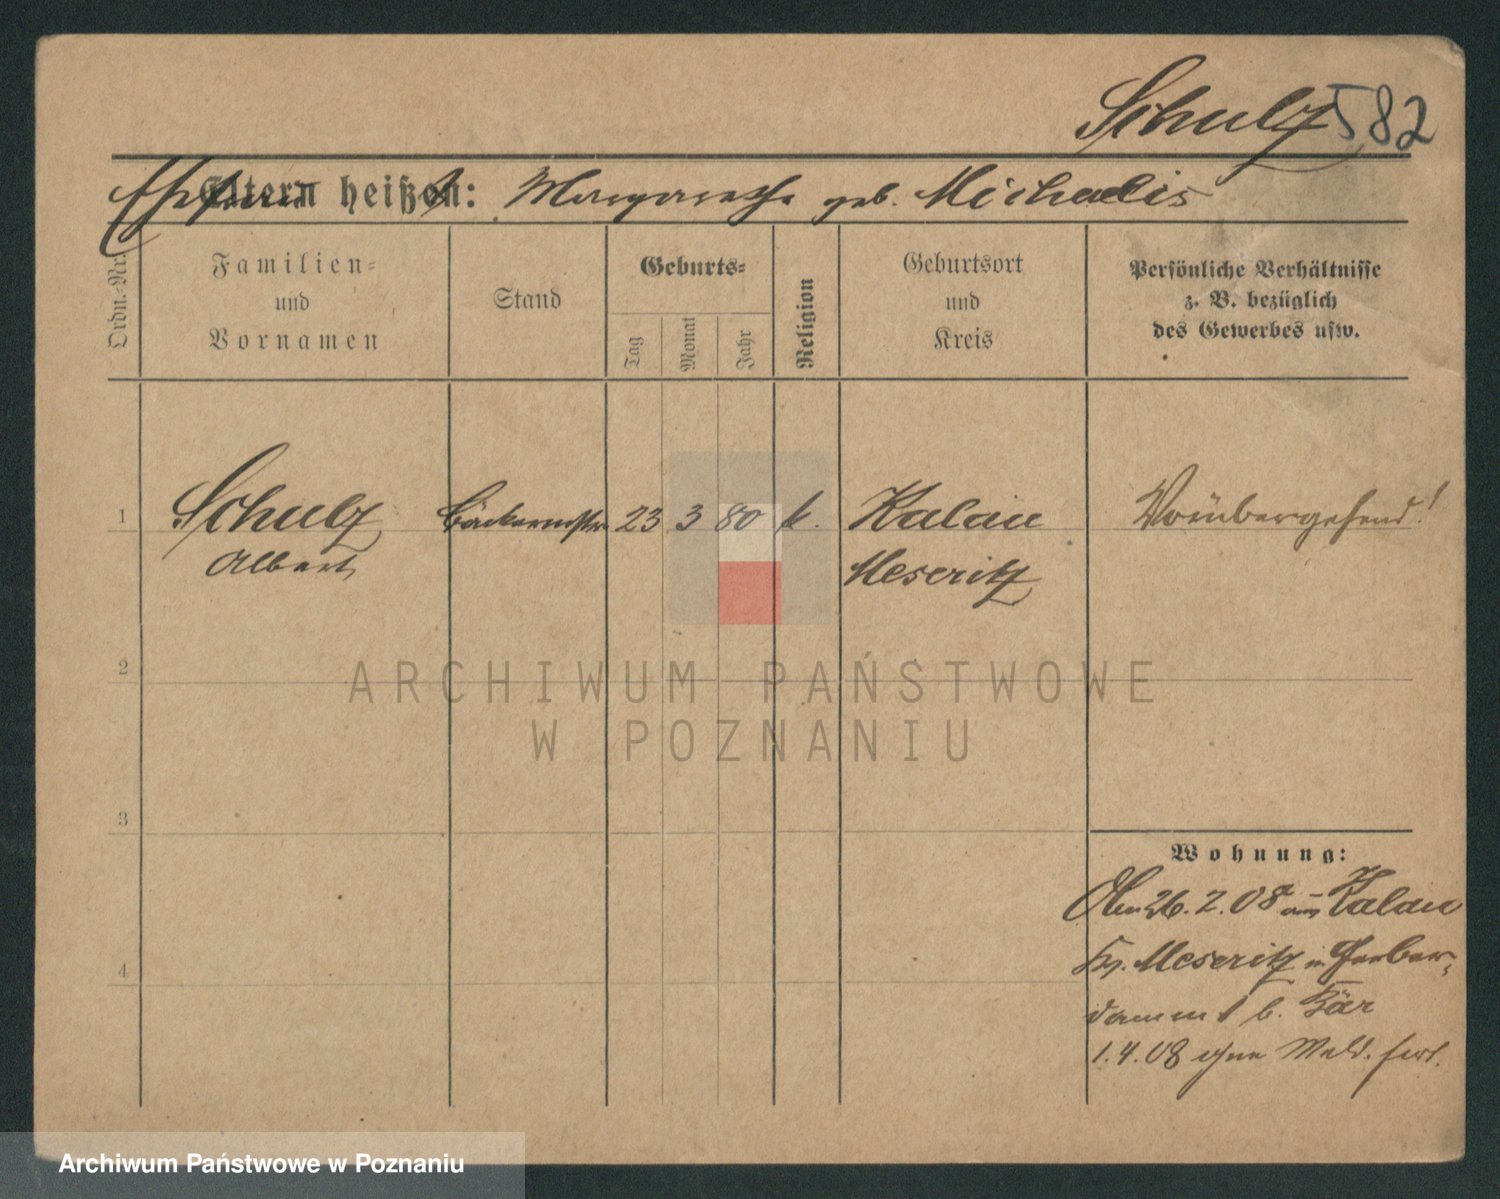 Schulz 582
Ehefrau Eltern heißen: Margarethe geb. Michaelis
Ordn.-Nr.
Familien-
und
Vornamen
Stand
Geburts-
Tag
Monat
Jahr
Religion
Geburtsort
und
Kreis
Persönliche Verhältnisse
z. B. bezüglich
des Gewerbes usw.
1 Schulz Bäckermstr. 23 3 80 k. Kalau Vorübergehend!
Albert Meseritz
2
3
Wohnung:
26. 2. 08 aus Kalau
Kr. Meseritz in Gerber-
damm 1 b. Bär
4
1. 4. 08 ohne Meld. fort.
ARCHIWUM PAŃSTWOWE
W POZNANIU
Archiwum Państwowe w Poznaniu